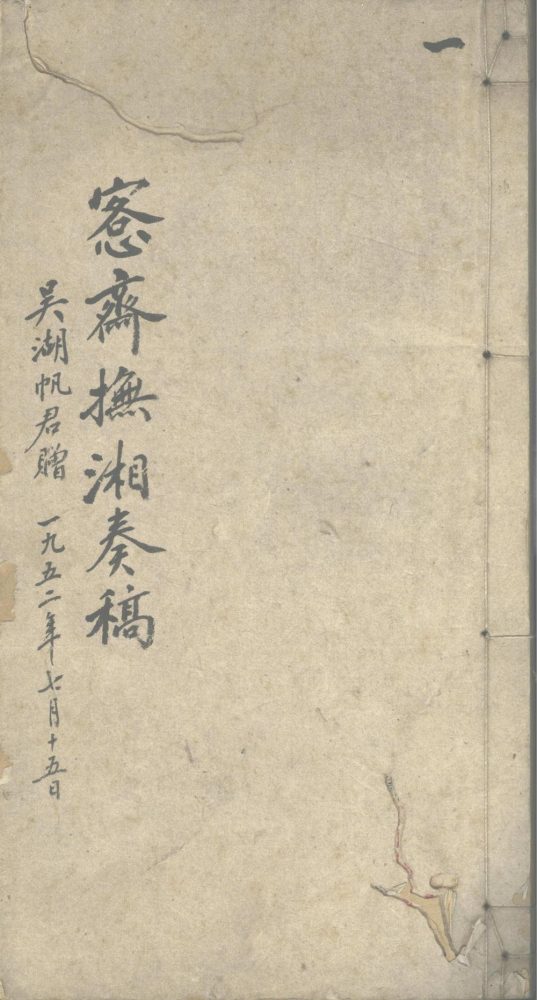 一
愙齋撫湘奏稿
吳湖帆君贈 一九五二年七月十五日